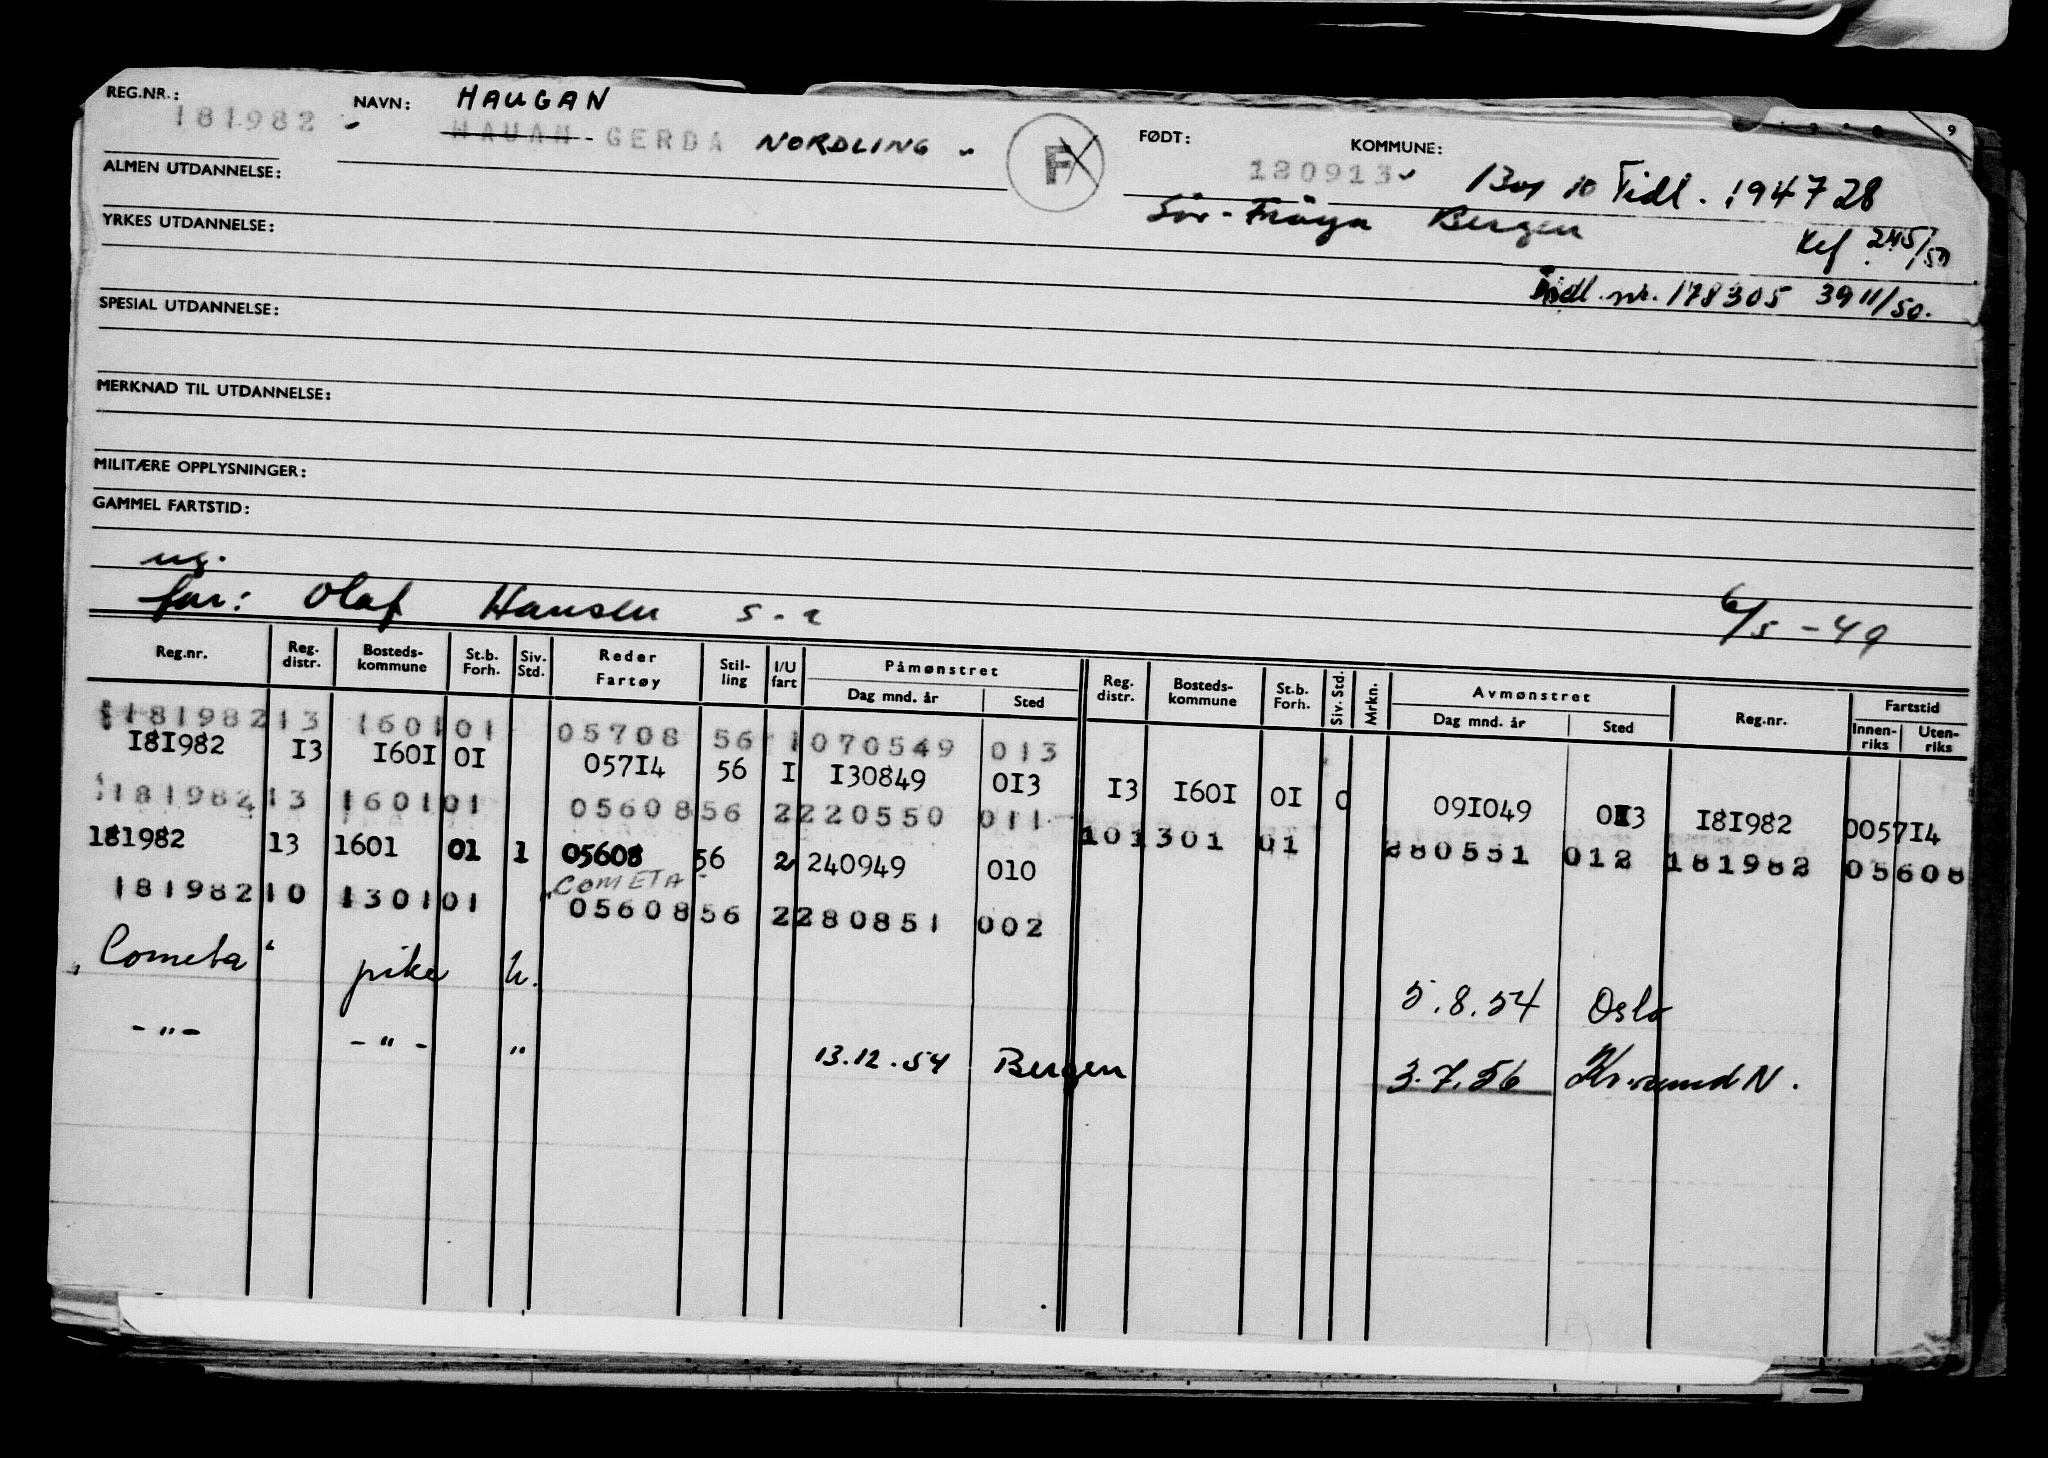 REG.NR.: 181982 NAVN: HAUGAN
HAUAN GERDA NORDLING F FØDT: 120913 KOMMUNE: 9
ALMEN UTDANNELSE: Tidl. 194728
Sör-Fröya Bergen
YRKES UTDANNELSE: 245/50
Tidl. nr. 178305 3911/50.
SPESIAL UTDANNELSE:
MERKNAD TIL UTDANNELSE:
MILITÆRE OPPLYSNINGER:
GAMMEL FARTSTID:
ug.
far: Olaf Hansen s.a 6/5-49
Reg.nr. Reg. distr. Bosteds-kommune St.b. Forh. Siv. Std. Reder Fartøy Stil-ling I/U fart Påmønstret Dag mnd. år Sted Reg. distr. Bosteds-kommune St.b. Forh. Siv. Std. Mrkn. Avmønstret Dag mnd. år Sted Reg.nr. Fartstid Innen-riks Uten-riks
181982 13 1601 01 05708 56 1 070549 013
I8I982 I3 I60I 0I 057I4 56 I I30849 0I3 I3 I60I 0I 0 09I049 0I3 I8I982 0057I4
181982 13 1601 01 05608 56 2 220550 011 10 1301 01 280551 012 181982 05608
181982 13 1601 01 1 05608 56 2 240949 010
COMETA
181982 10 1301 01 05608 56 2 280851 002
"Cometa" pike U. 5.8.54 Oslo
-"- -"- " 13.12.54 Bergen 3.7.56 Kr.sund N.